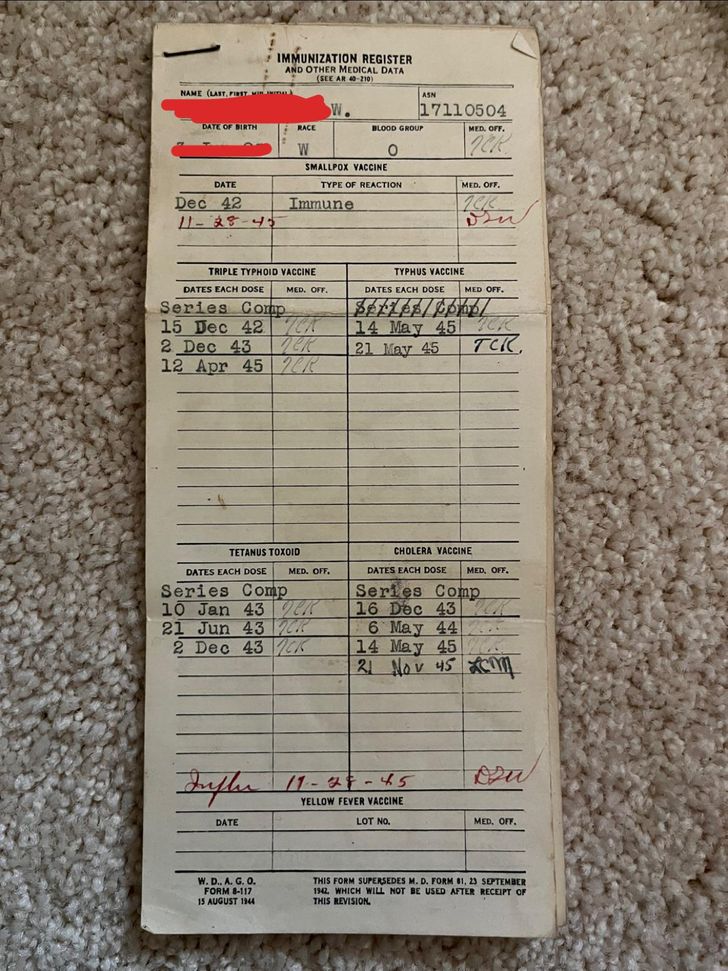 IMMUNIZATION REGISTER
AND OTHER MEDICAL DATA
(SEE AR 40-210)
NAME (LAST, FIRST, MID INITIAL) ASN
W. 17110504
DATE OF BIRTH RACE BLOOD GROUP MED. OFF.
W O TCK
SMALLPOX VACCINE
DATE TYPE OF REACTION MED. OFF.
Dec 42 Immune TCK
11-28-45
TRIPLE TYPHOID VACCINE TYPHUS VACCINE
DATES EACH DOSE MED. OFF. DATES EACH DOSE MED OFF.
Series Comp Series Comp
15 Dec 42 TCK 14 May 45 TCK
2 Dec 43 TCK 21 May 45 TCK.
12 Apr 45 TCK
TETANUS TOXOID CHOLERA VACCINE
DATES EACH DOSE MED. OFF. DATES EACH DOSE MED. OFF.
Series Comp Series Comp
10 Jan 43 TCK 16 Dec 43 TCK
21 Jun 43 TCK 6 May 44
2 Dec 43 TCK 14 May 45
21 Nov 45
11-28-45
YELLOW FEVER VACCINE
DATE LOT NO. MED. OFF.
W. D., A. G. O. THIS FORM SUPERSEDES M. D. FORM 81, 23 SEPTEMBER
FORM 8-117 1942, WHICH WILL NOT BE USED AFTER RECEIPT OF
15 AUGUST 1944 THIS REVISION.